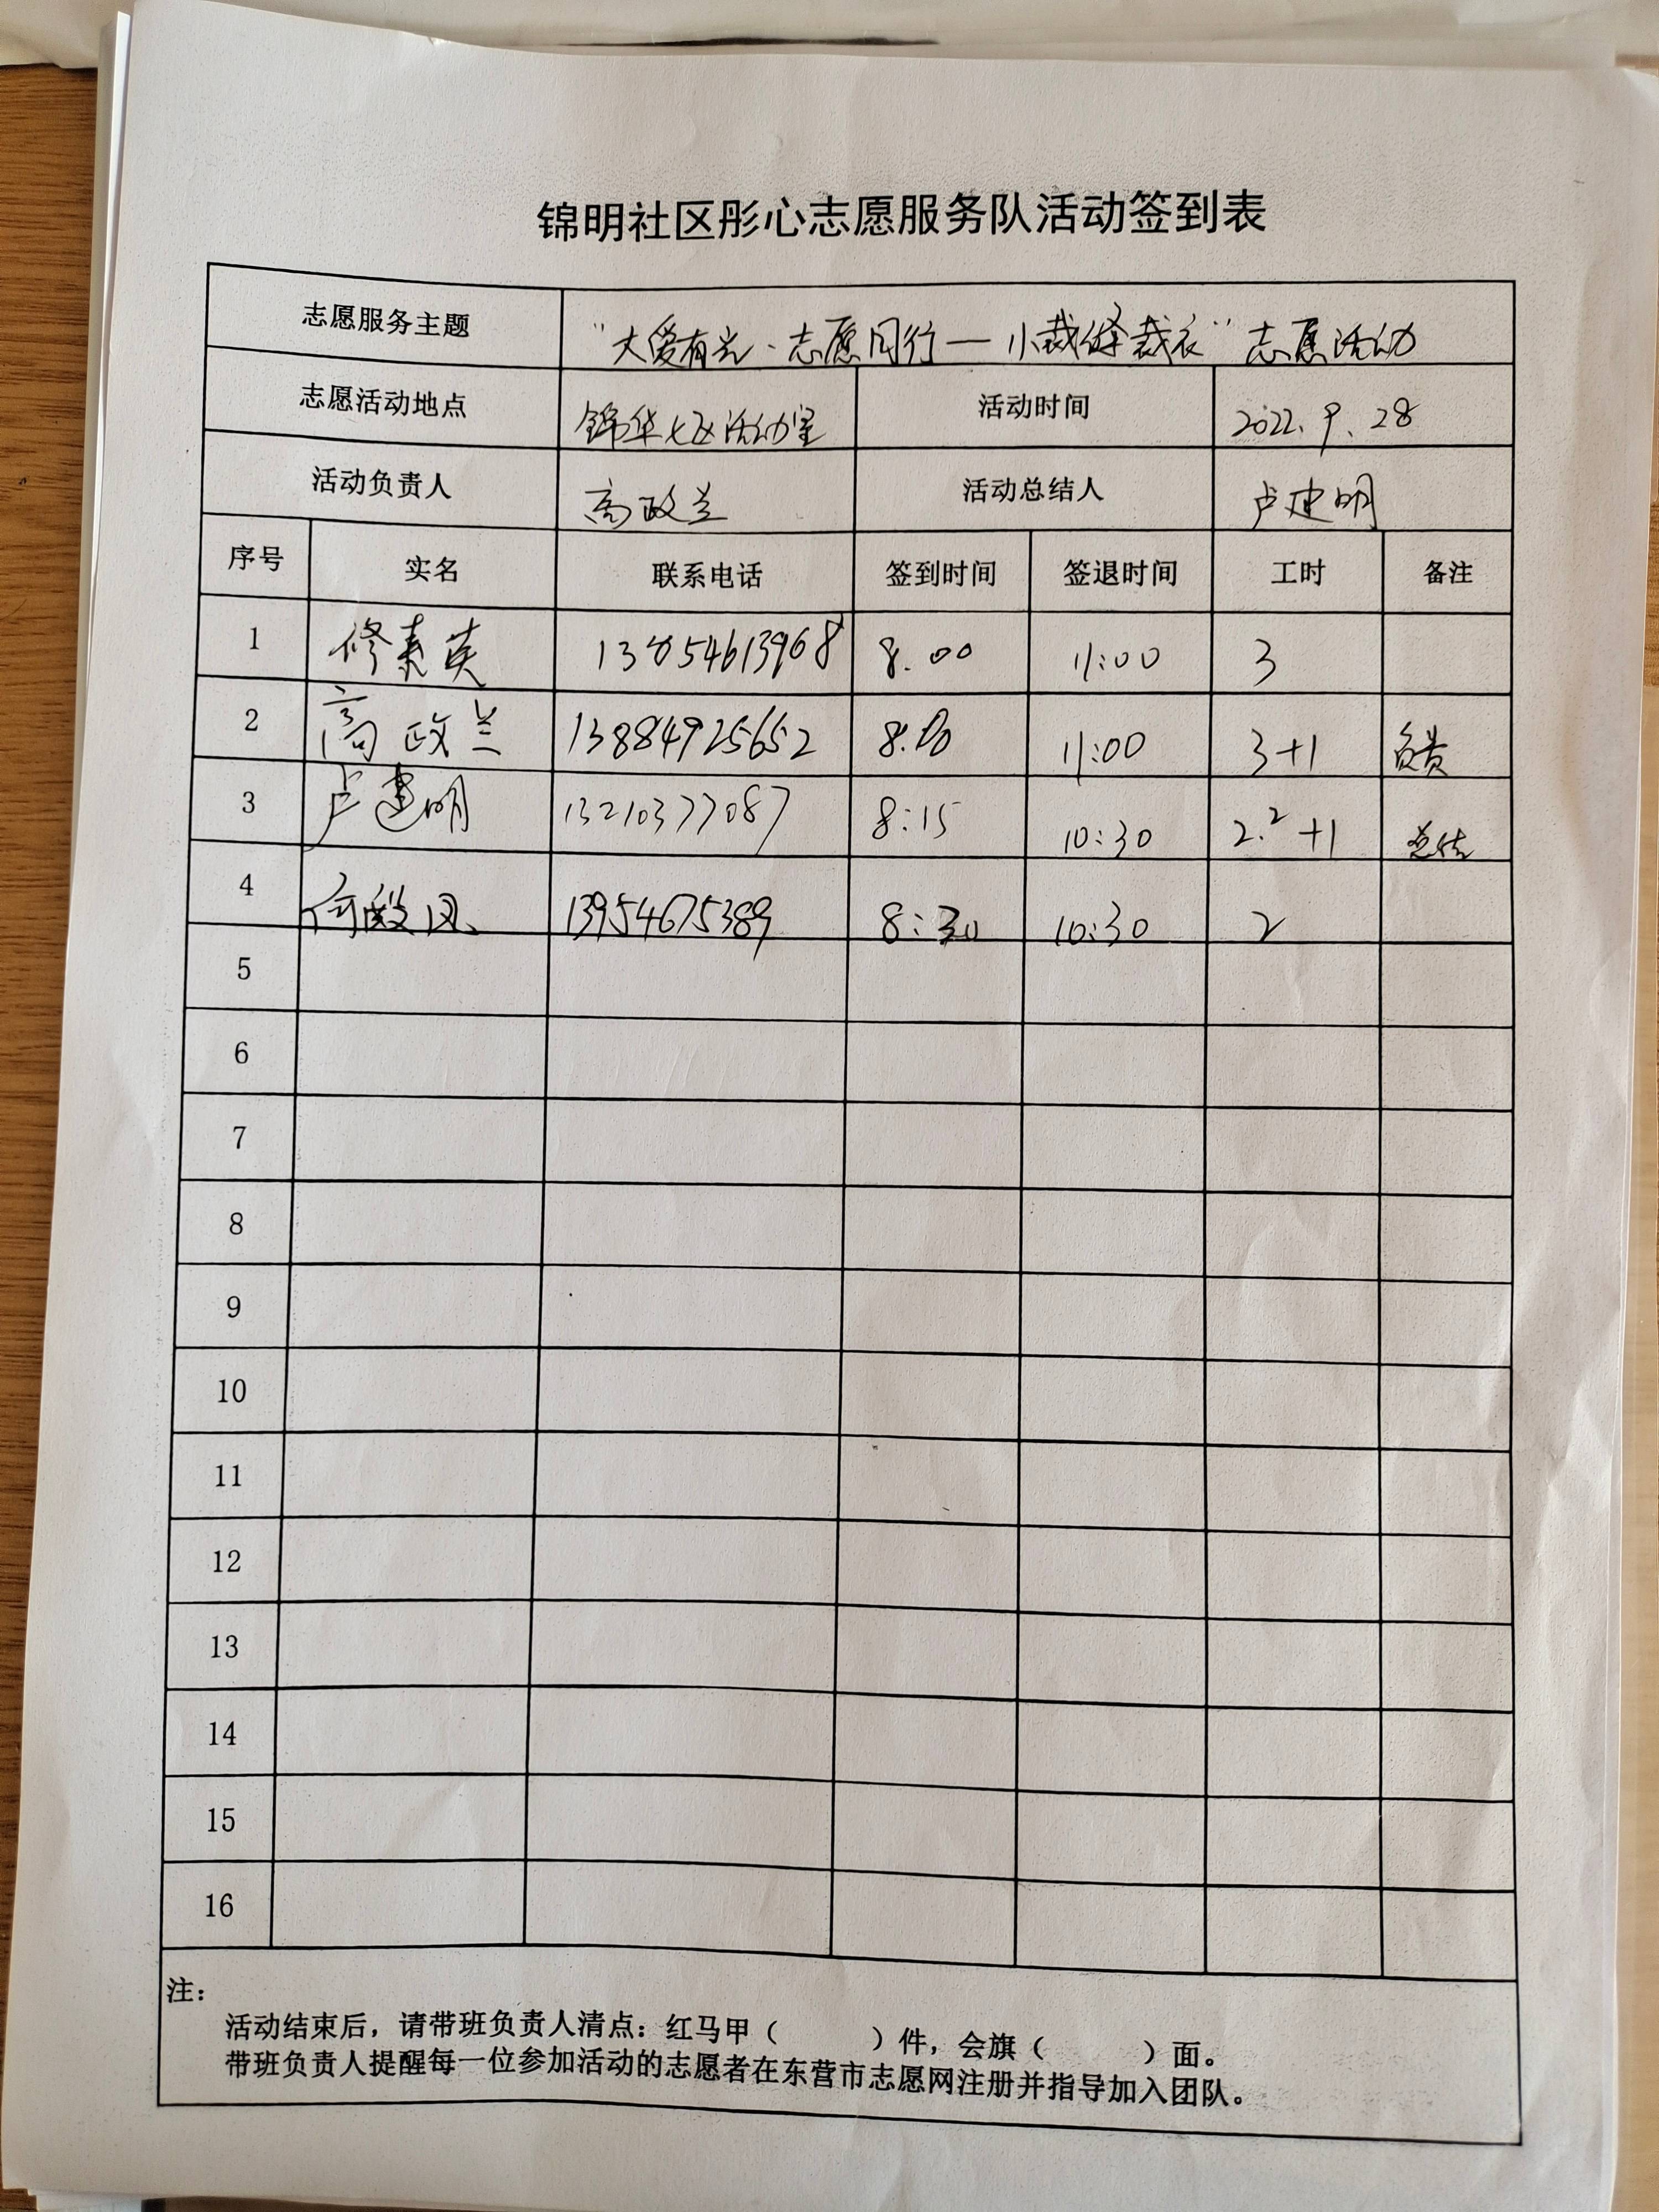 锦明社区彤心志愿服务队活动签到表
志愿服务主题 “大爱有光·志愿同行—小裁缝裁衣”志愿活动
志愿活动地点 锦华七区活动室 活动时间 2022.9.28
活动负责人 高政兰 活动总结人 卢建明
序号 实名 联系电话 签到时间 签退时间 工时 备注
1 修素英 13854613968 8.00 11:00 3
2 高政兰 13884925652 8:00 11:00 3+1 负责
3 卢建明 13210377087 8:15 10:30 2.2+1 总结
4 何 凤 13954675389 8:30 10:30 2
5
6
7
8
9
10
11
12
13
14
15
16
注：
活动结束后，请带班负责人清点：红马甲（ ）件，会旗（ ）面。
带班负责人提醒每一位参加活动的志愿者在东营市志愿网注册并指导加入团队。